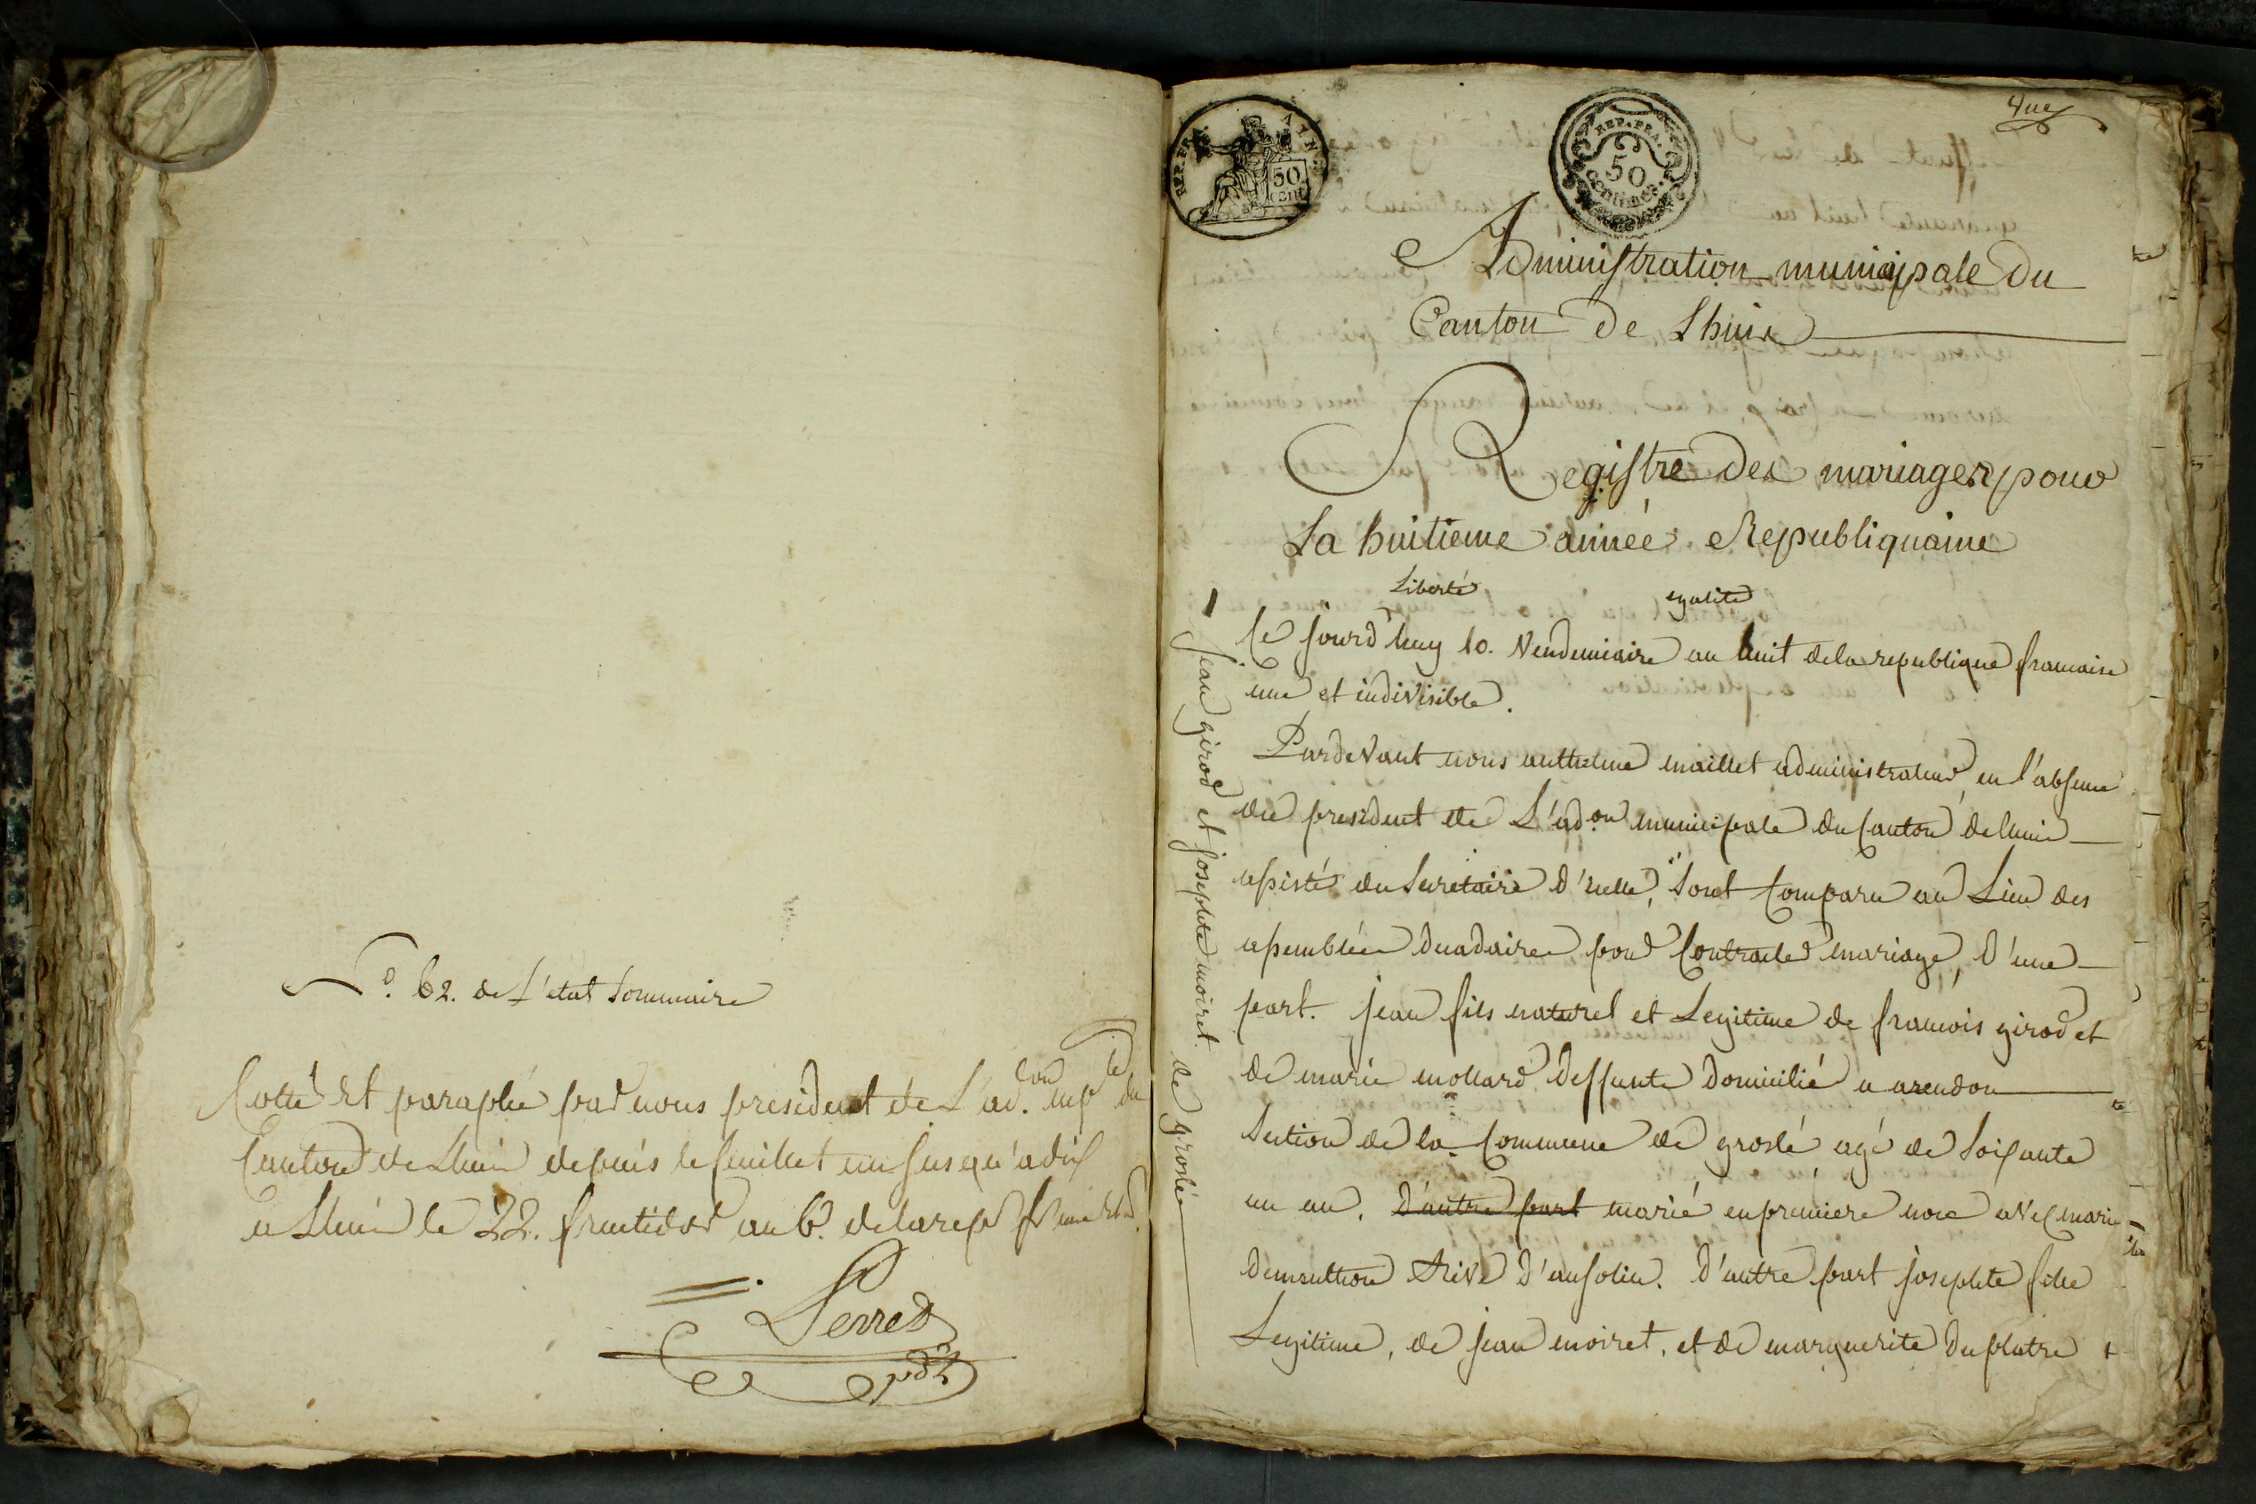 No. 62. de L'etat Sommaire
Cotté Et paraphé par nous president de L'ad.on mple du
Canton de Lhuis depuis le feuillet un jusqu'a dix
a Lhuis le 22. fructidor an 6e. de la rep. fr. une Et
Perret
pdt
REP. FRA.
50
CENT.
REP. FRA.
50
CENTIMES
Administration municipale Du
Canton De Lhuis
Registre Des mariages pour
La huitieme année Republiquaine
Liberté egalité
1 jean girod et josephte moiret. de groslé
Ce jourd'huy 10. Vendemiaire an huit de la republique francaise
une et indivisible.
Pardevant nous anthelme maillet administrateur, en l'absence
du president de L'ad.on municipale du Canton de lhuis
assisté du Secretaire d'icelle, Sont Comparu au Lieu des
assemblées decadaires pour Contracter mariage, D'une
part. jean fils naturel et Legitime de francois girod et
de marie mollard Deffunte Domicilié a arendon
Section de la Commune de groslé agé de Soixante
un an. D'autre part marié en premiere noce avec marie
D'ansolin. D'autre part josephte fille
Legitime, de jean moiret, et de marguerite Duplatre +